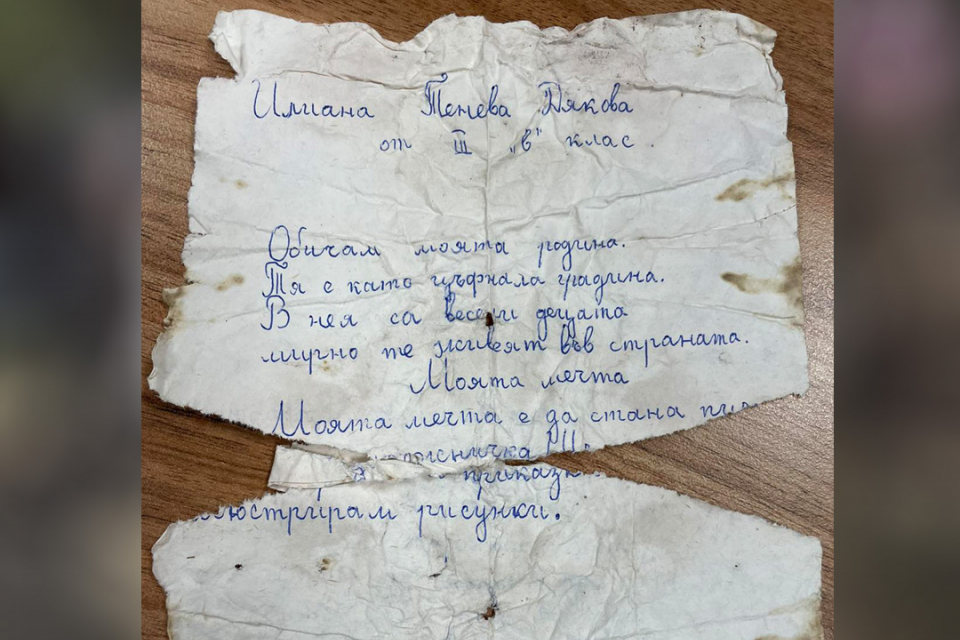 Илиана Тенева Дякова
от III „в" клас.
Обичам моята родина.
Тя е като цъфнала градина.
В нея са весели децата
мирно те живеят във страната.
Моята мечта
Моята мечта е да стана
рисунки.